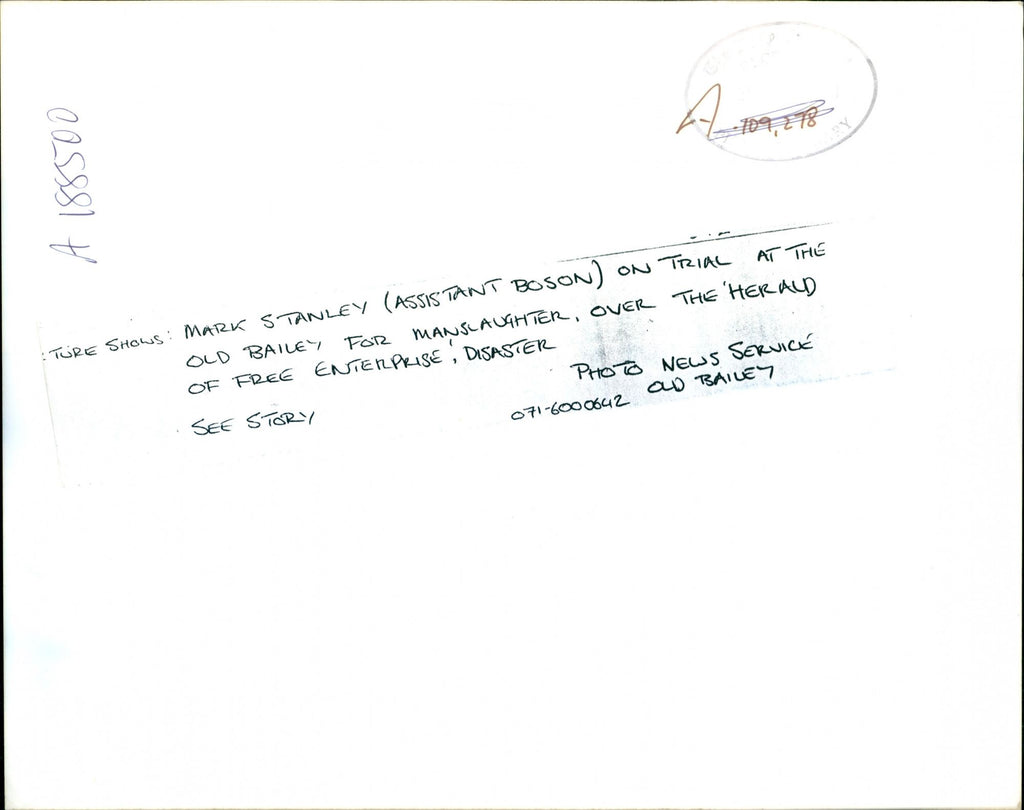 A 188500
A 109,278
:TURE SHOWS: MARK STANLEY (ASSISTANT BOSON) ON TRIAL AT THE
OLD BAILEY, FOR MANSLAUGHTER, OVER THE 'HERALD
OF FREE ENTERPRISE', DISASTER
PHOTO NEWS SERVICE
SEE STORY 071-6000642 OLD BAILEY